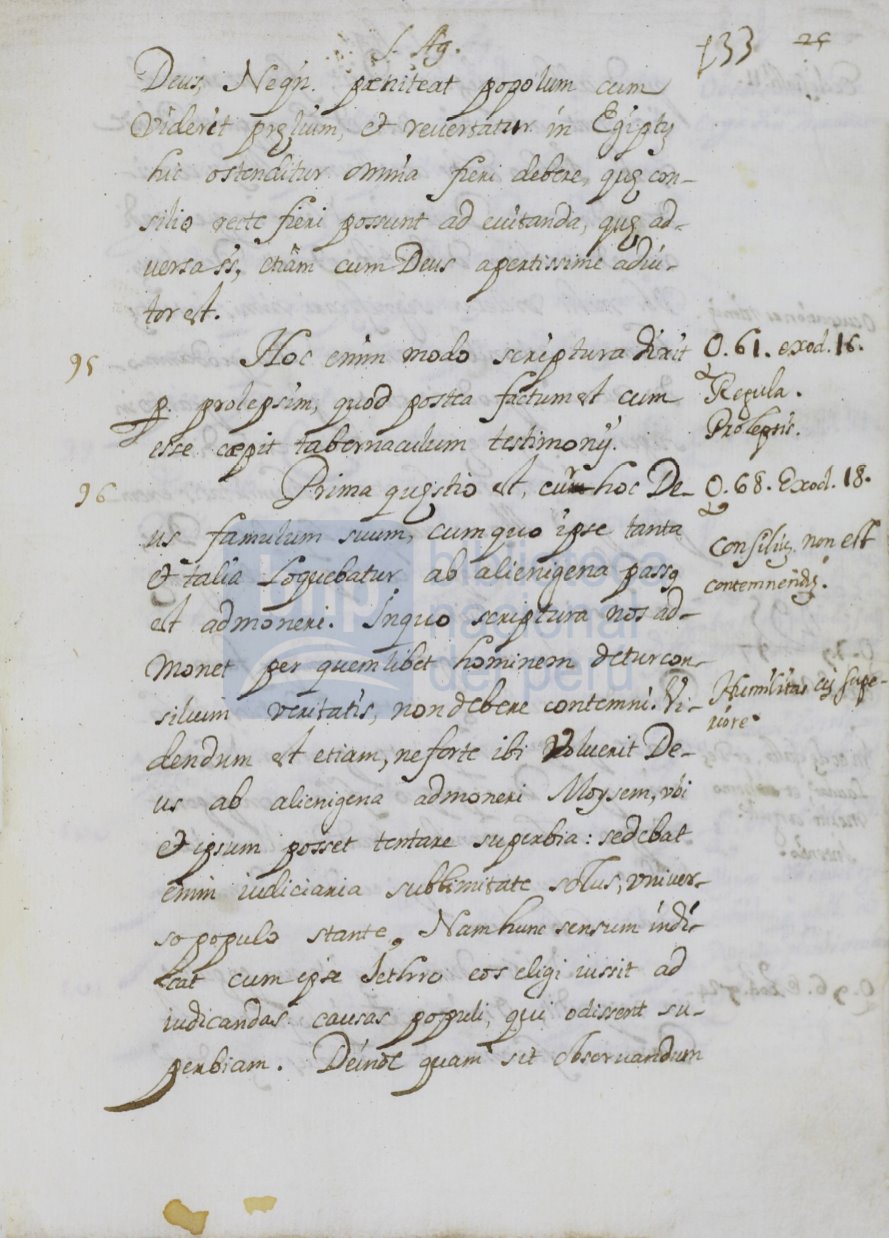 S. Ag.
133
25
Deus, Negn. pæniteat popolum cum
Viderit prȩlium, et reuersatur in Egipty
hic ostenditur omnia fieri debere, quȩ con-
silio recte fieri possunt ad euitanda, quȩ ad-
versa ss, etiam cum Deus apertissime adiu-
tor est.
95
Hoc enim modo scriptura dixit
O. 61. exod. 16.
p prolepsim, quod postea factum est cum
Regula.
esse cæpit tabernaculum testimonij.
Prolepsis.
96
Prima quȩstio est, cur hoc De-
Q. 68. Exod. 18.
us famulum suum, cum quo ipse tanta
Consiliũ non est
et talia Loquebatur ab alienigena passȩ
contemnendũ.
est admoneri. Inquo scriptura nos ad-
monet per quemlibet hominem detur con-
silium veritatis, non debere contemni. Vi-
Humilitas cũ supe-
riore.
dendum est etiam, ne forte ibi voluerit De-
us ab alienigena admoneri Moysem, vbi
et ipsum posset tentare superbia: sedebat
enim iudiciaria sublimitate solus, vniver-
so populo stante. Nam hunc sensum indi-
cat cum ipse Jethro eos eligi iussit ad
iudicandas causas populi, qui odissent su-
perbiam. Deinde quam sit obseruandum
biblioteca
nacional
del perú